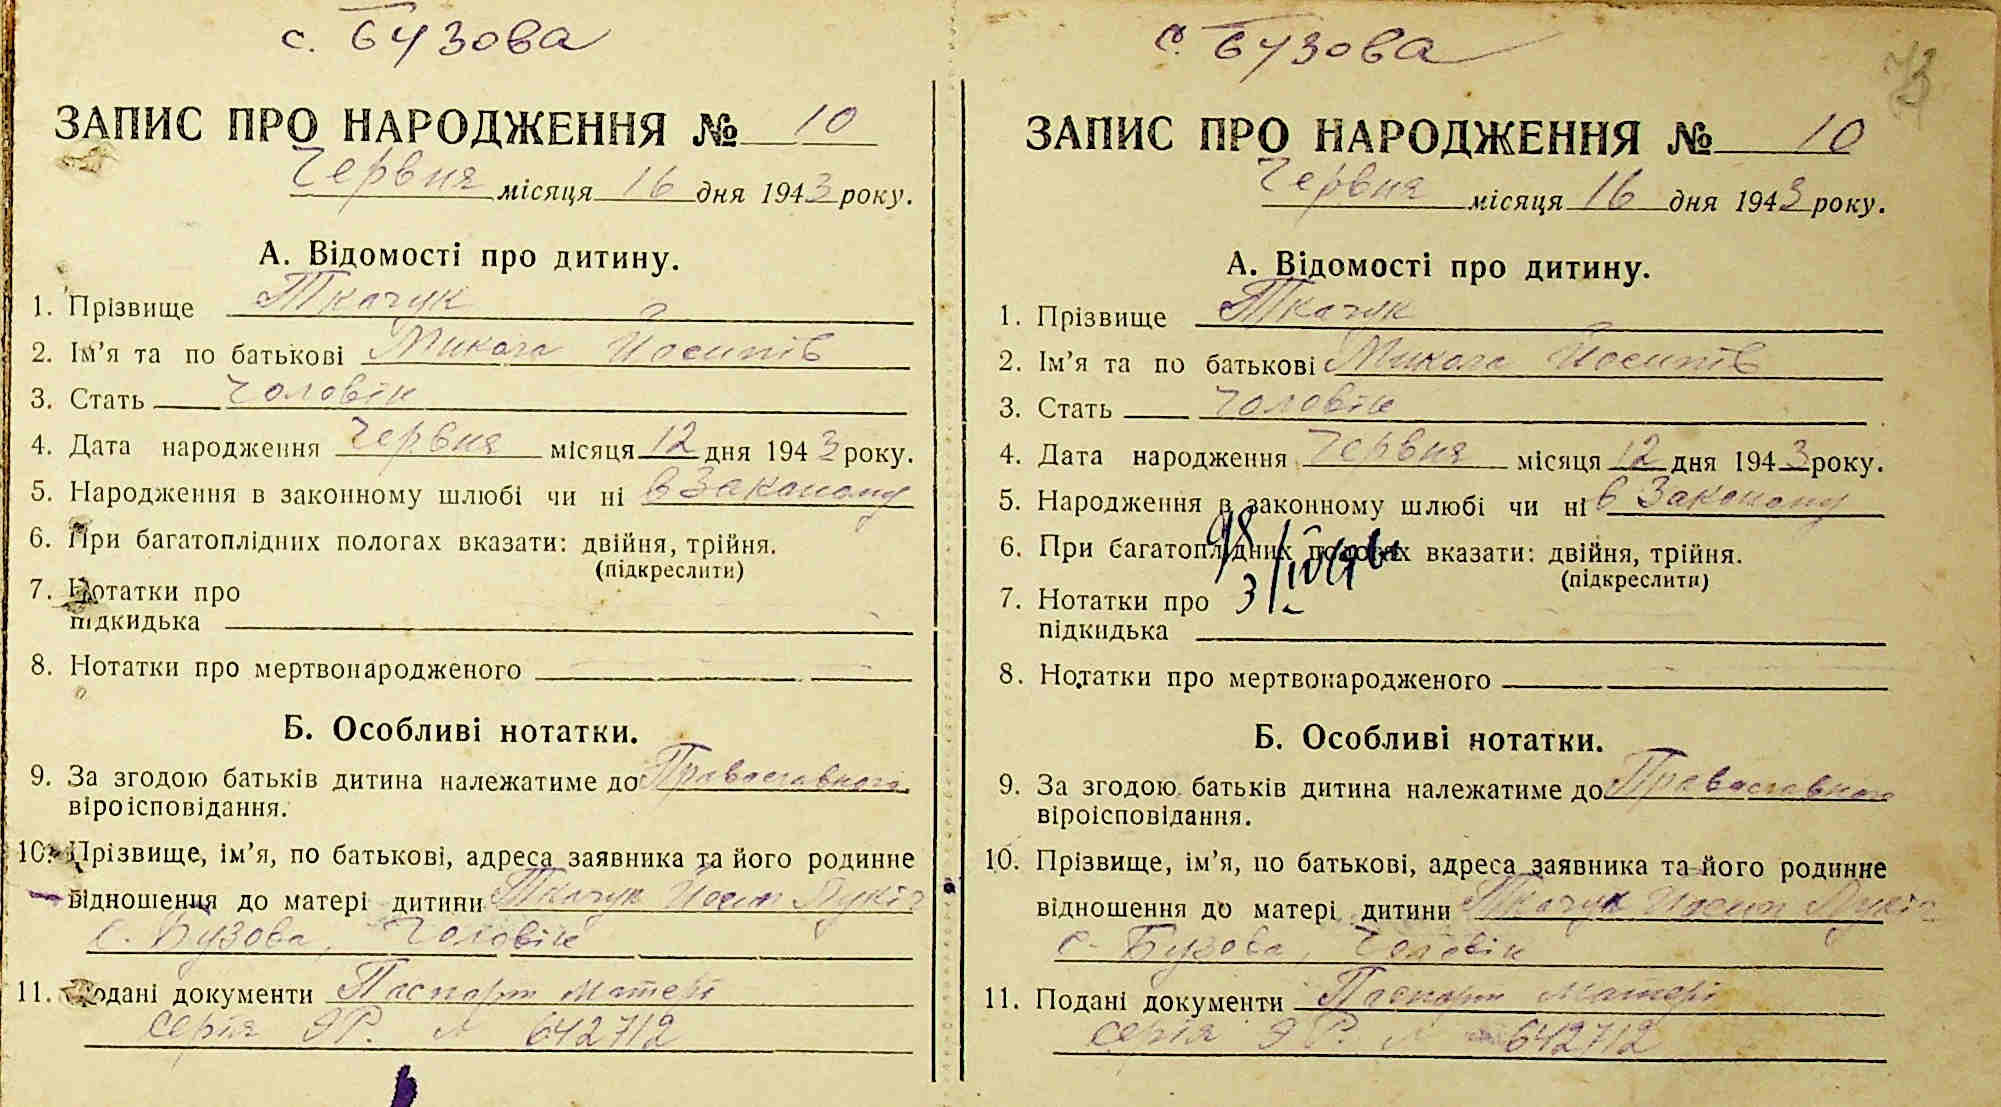 с. Бузова
ЗАПИС ПРО НАРОДЖЕННЯ № 10
Червня місяця 16 дня 1943 року.
А. Відомості про дитину.
1. Прізвище Ткачук
2. Ім’я та по батькові Микола Йосипів
3. Стать Чоловік
4. Дата народження Червня місяця 12 дня 1943 року.
5. Народження в законному шлюбі чи ні в Законому
6. При багатоплідних пологах вказати: двійня, трійня.
(підкреслити)
7. Нотатки про
підкидька
8. Нотатки про мертвонародженого
Б. Особливі нотатки.
9. За згодою батьків дитина належатиме до Православного
віроісповідання.
10. Прізвище, ім’я, по батькові, адреса заявника та його родинне
відношення до матері дитини Ткачук Йосип Лукіч
с. Бузова, Чоловік
11. Подані документи Паспорт матері
серія ЯР. № 642712
с. Бузова
73
ЗАПИС ПРО НАРОДЖЕННЯ № 10
Червня місяця 16 дня 1943 року.
А. Відомості про дитину.
1. Прізвище Ткачук
2. Ім’я та по батькові Микола Йосипів
3. Стать Чоловік
4. Дата народження Червня місяця 12 дня 1943 року.
5. Народження в законному шлюбі чи ні в Законому
6. При багатоплідних пологах вказати: двійня, трійня.
(підкреслити)
7. Нотатки про
підкидька
8. Нотатки про мертвонародженого
Б. Особливі нотатки.
9. За згодою батьків дитина належатиме до Православного
віроісповідання.
10. Прізвище, ім’я, по батькові, адреса заявника та його родинне
відношення до матері дитини Ткачук Йосип Лукіч
с. Бузова, Чоловік
11. Подані документи Паспорт матері
серія ЯР. № 642712